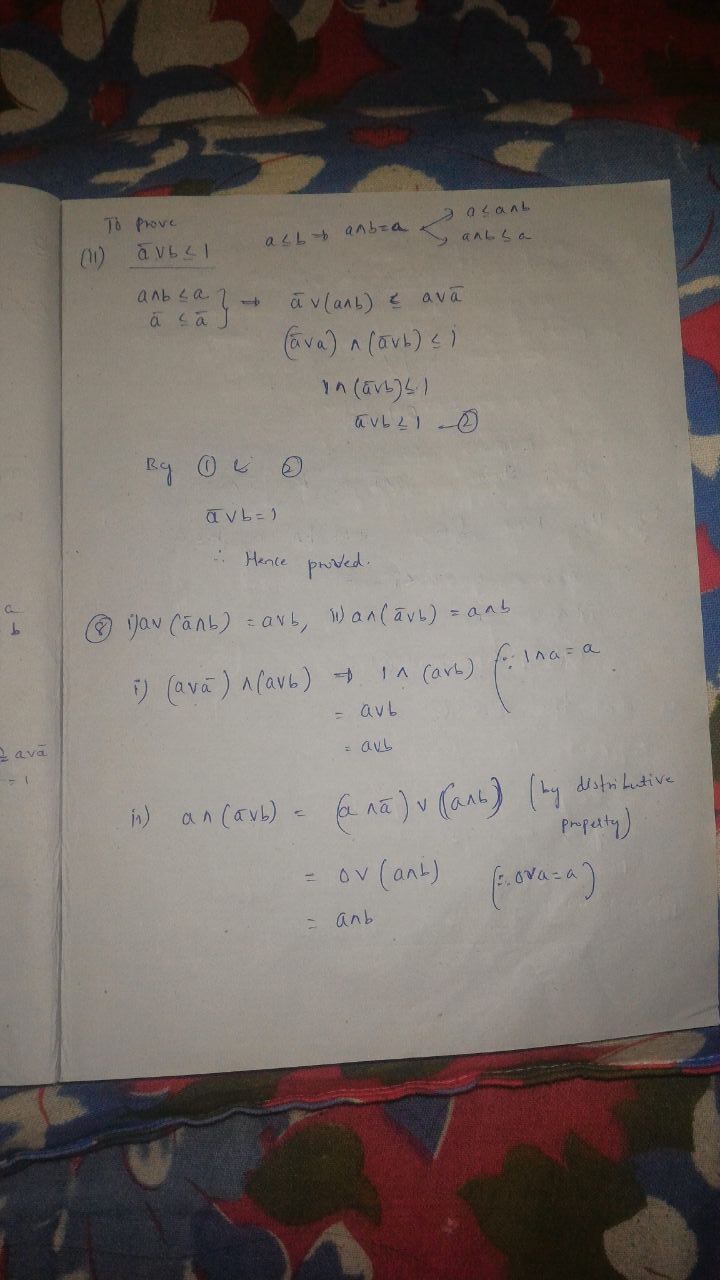 To Prove
(ii) ā ∨ b ≤ 1 a ≤ b ⇒ a∧b = a a ≤ a∧b
a∧b ≤ a
a∧b ≤ a } ⇒ ā ∨ (a∧b) ≤ a∨ā
ā ≤ ā
(ā∨a) ∧ (ā∨b) ≤ 1
1∧(ā∨b) ≤ 1
ā∨b ≤ 1 — ②
By ① & ②
ā∨b = 1
∴ Hence proved.
⑧ i) a∨(ā∧b) = a∨b, ii) a∧(ā∨b) = a∧b
i) (a∨ā) ∧ (a∨b) ⇒ 1 ∧ (a∨b) (∵ 1∧a = a
= a∨b
= a∨b
ii) a∧(ā∨b) = (a∧ā) ∨ (a∧b) (by distributive
property)
= 0∨(a∧b) (∵ 0∨a = a)
= a∧b
a
b
≥ a∨ā
= 1